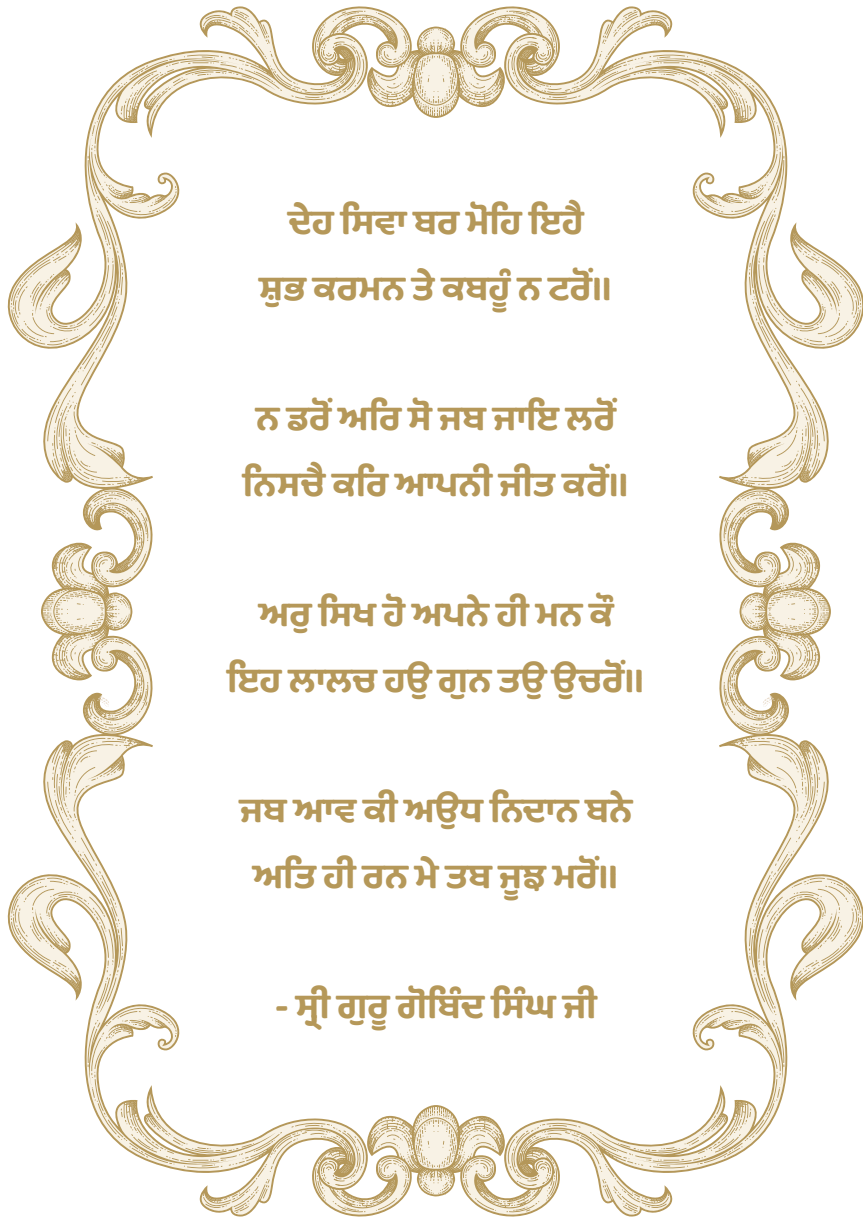 ਦੇਹ ਸਿਵਾ ਬਰ ਮੋਹਿ ਇਹੈ
ਸ਼ੁਭ ਕਰਮਨ ਤੇ ਕਬਹੂੰ ਨ ਟਰੋਂ॥
ਨ ਡਰੋਂ ਅਰਿ ਸੋ ਜਬ ਜਾਇ ਲਰੋਂ
ਨਿਸਚੈ ਕਰਿ ਆਪਨੀ ਜੀਤ ਕਰੋਂ॥
ਅਰੁ ਸਿਖ ਹੋ ਅਪਨੇ ਹੀ ਮਨ ਕੌ
ਇਹ ਲਾਲਚ ਹਉ ਗੁਨ ਤਉ ਉਚਰੋਂ॥
ਜਬ ਆਵ ਕੀ ਅਉਧ ਨਿਦਾਨ ਬਨੇ
ਅਤਿ ਹੀ ਰਨ ਮੇ ਤਬ ਜੂਝ ਮਰੋਂ॥
- ਸ੍ਰੀ ਗੁਰੂ ਗੋਬਿੰਦ ਸਿੰਘ ਜੀ